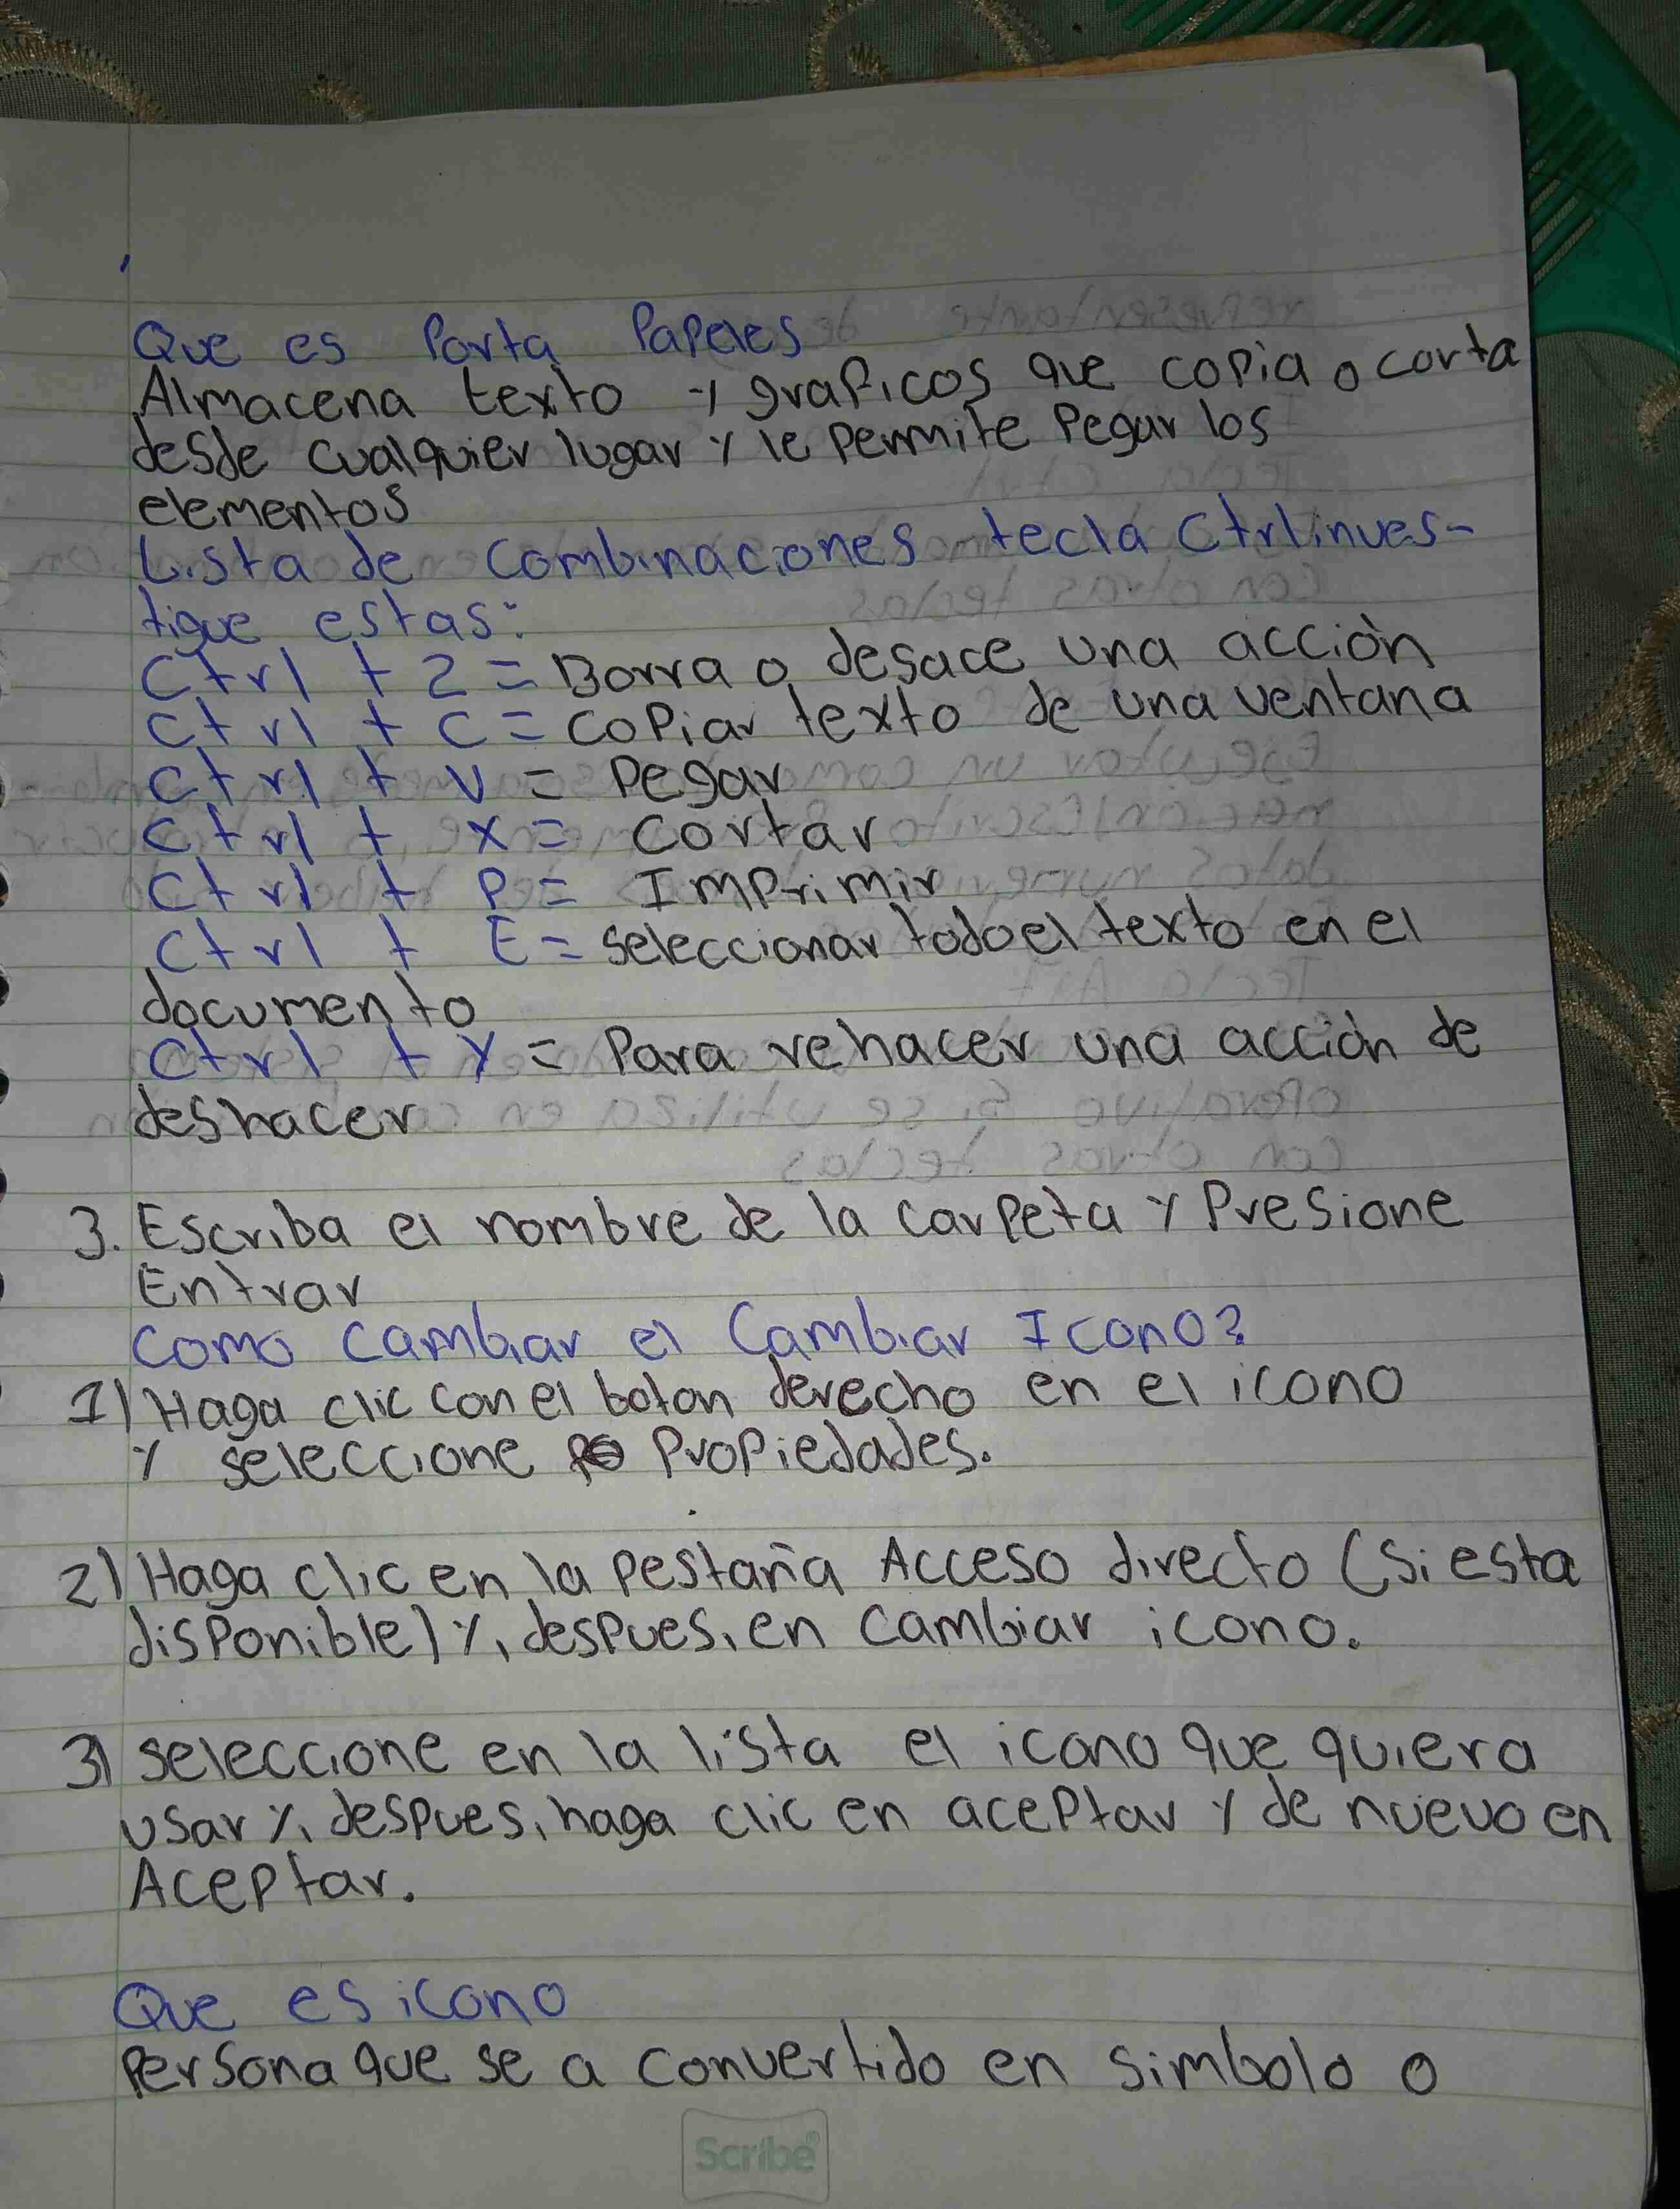 Que es Porta Papeles
Almacena texto y graficos que copia o corta
desde cualquier lugar y le permite Pegar los
elementos
Lista de combinaciones tecla Ctrl inves-
tigue estas:
Ctrl + Z = Borra o desace una acción
Ctrl + C = Copiar texto de una ventana
Ctrl + V = Pegar
Ctrl + X = Cortar
Ctrl + P = Imprimir
Ctrl + E = seleccionar todo el texto en el
documento
Ctrl + Y = Para rehacer una acción de
deshacer
3. Escriba el nombre de la carpeta y Presione
Entrar
Como cambiar el Cambiar Icono?
1) Haga clic con el boton derecho en el icono
y seleccione Propiedades.
2) Haga clic en la pestaña Acceso directo (si esta
disponible) y, despues, en cambiar icono.
3) seleccione en la lista el icono que quiera
usar y, despues, haga clic en aceptar y de nuevo en
Aceptar.
Que es icono
Persona que se a convertido en simbolo o
Scribe